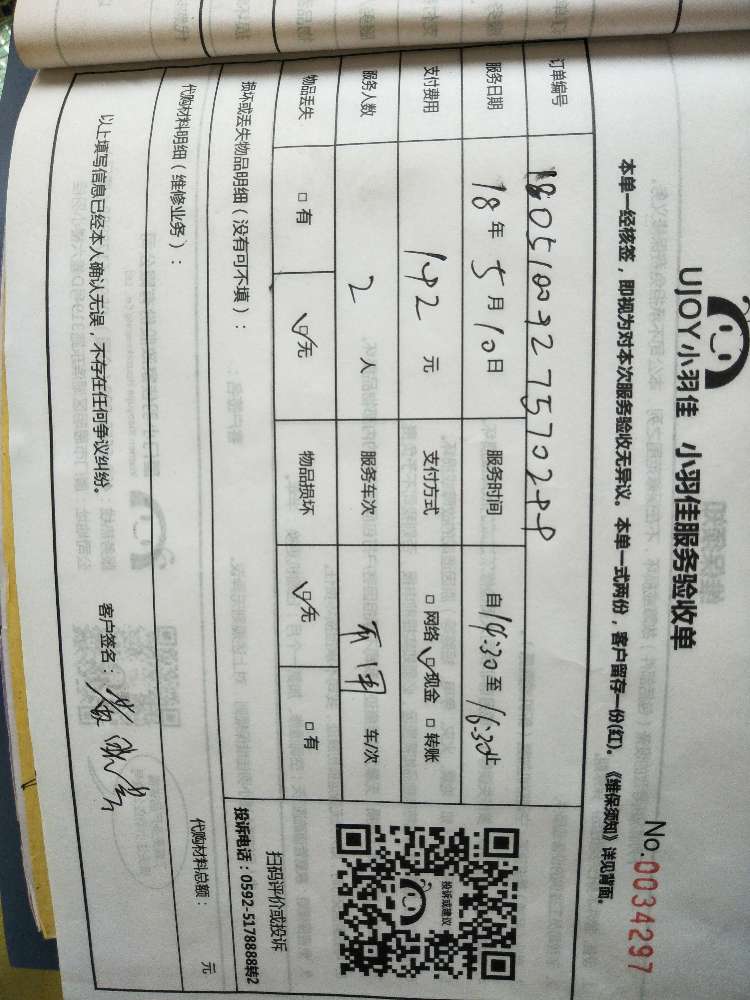 UJOY小羽佳 小羽佳服务验收单
No.0034297
本单一经核签，即视为对本次服务验收无异议。本单一式两份，客户留存一份(红)。《维保须知》详见背面。
订单编号
服务日期 18年5月10日 服务时间 自14:30至16:30止
支付费用 142元 支付方式 □网络 ☑现金 □转账
服务人数 2人 服务车次 车/次
物品丢失 □有 ☑无 物品损坏 ☑无 □有
损坏或丢失物品明细（没有可不填）：
投诉或建议
扫码评价或投诉
投诉电话：0592-5178888转2
代购材料明细（维修业务）：
代购材料总额： 元
以上填写信息已经本人确认无误，不存在任何争议纠纷。 客户签名：